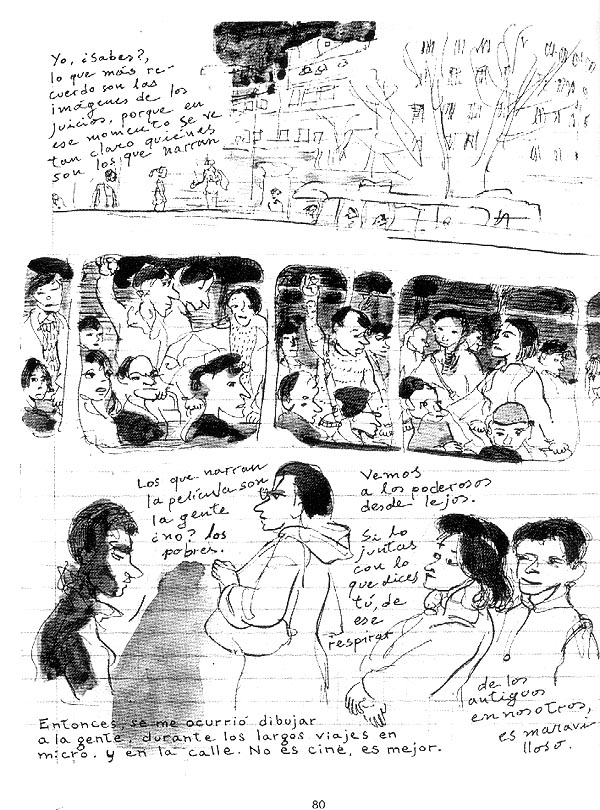 Yo, ¿Sabes?,
lo que más re-
cuerdo son las
imágenes de los
juicios, porque en
ese momento se ve
tan claro quiénes
son los que narran
Los que narran
la película son
la gente
¿no? los
pobres.
Vemos
a los poderosos
desde lejos.
Si lo
juntas
con lo
que dices
tú, de
ese
respirar
de los
antiguos
en nosotros,
es maravi
lloso.
Entonces se me ocurrió dibujar
a la gente, durante los largos viajes en
micro. y en la calle. No es cine, es mejor.
80